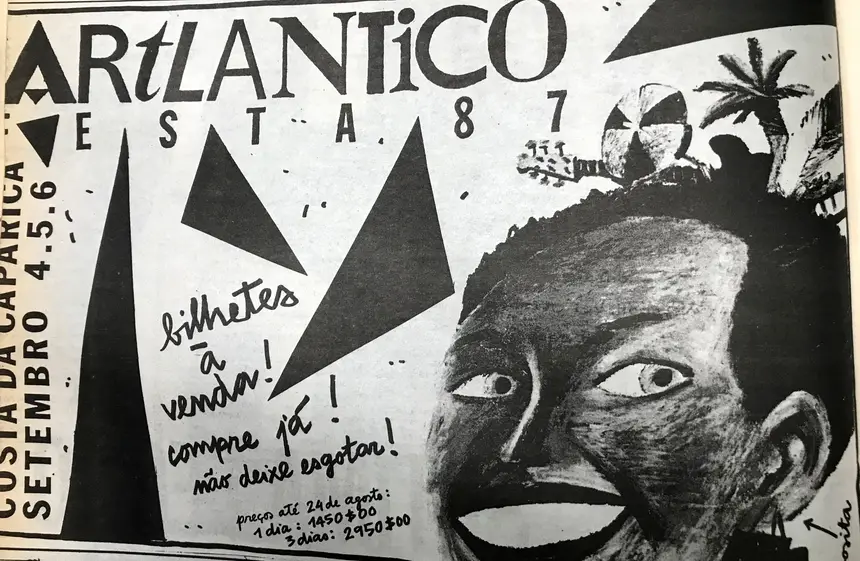 ARtLANTiCO
FESTA 87
COSTA DA CAPARICA
SETEMBRO 4.5.6
bilhetes
à
venda!
compre já!
não deixe esgotar!
preços até 24 de agosto:
1 dia: 1450$00
3 dias: 2950$00